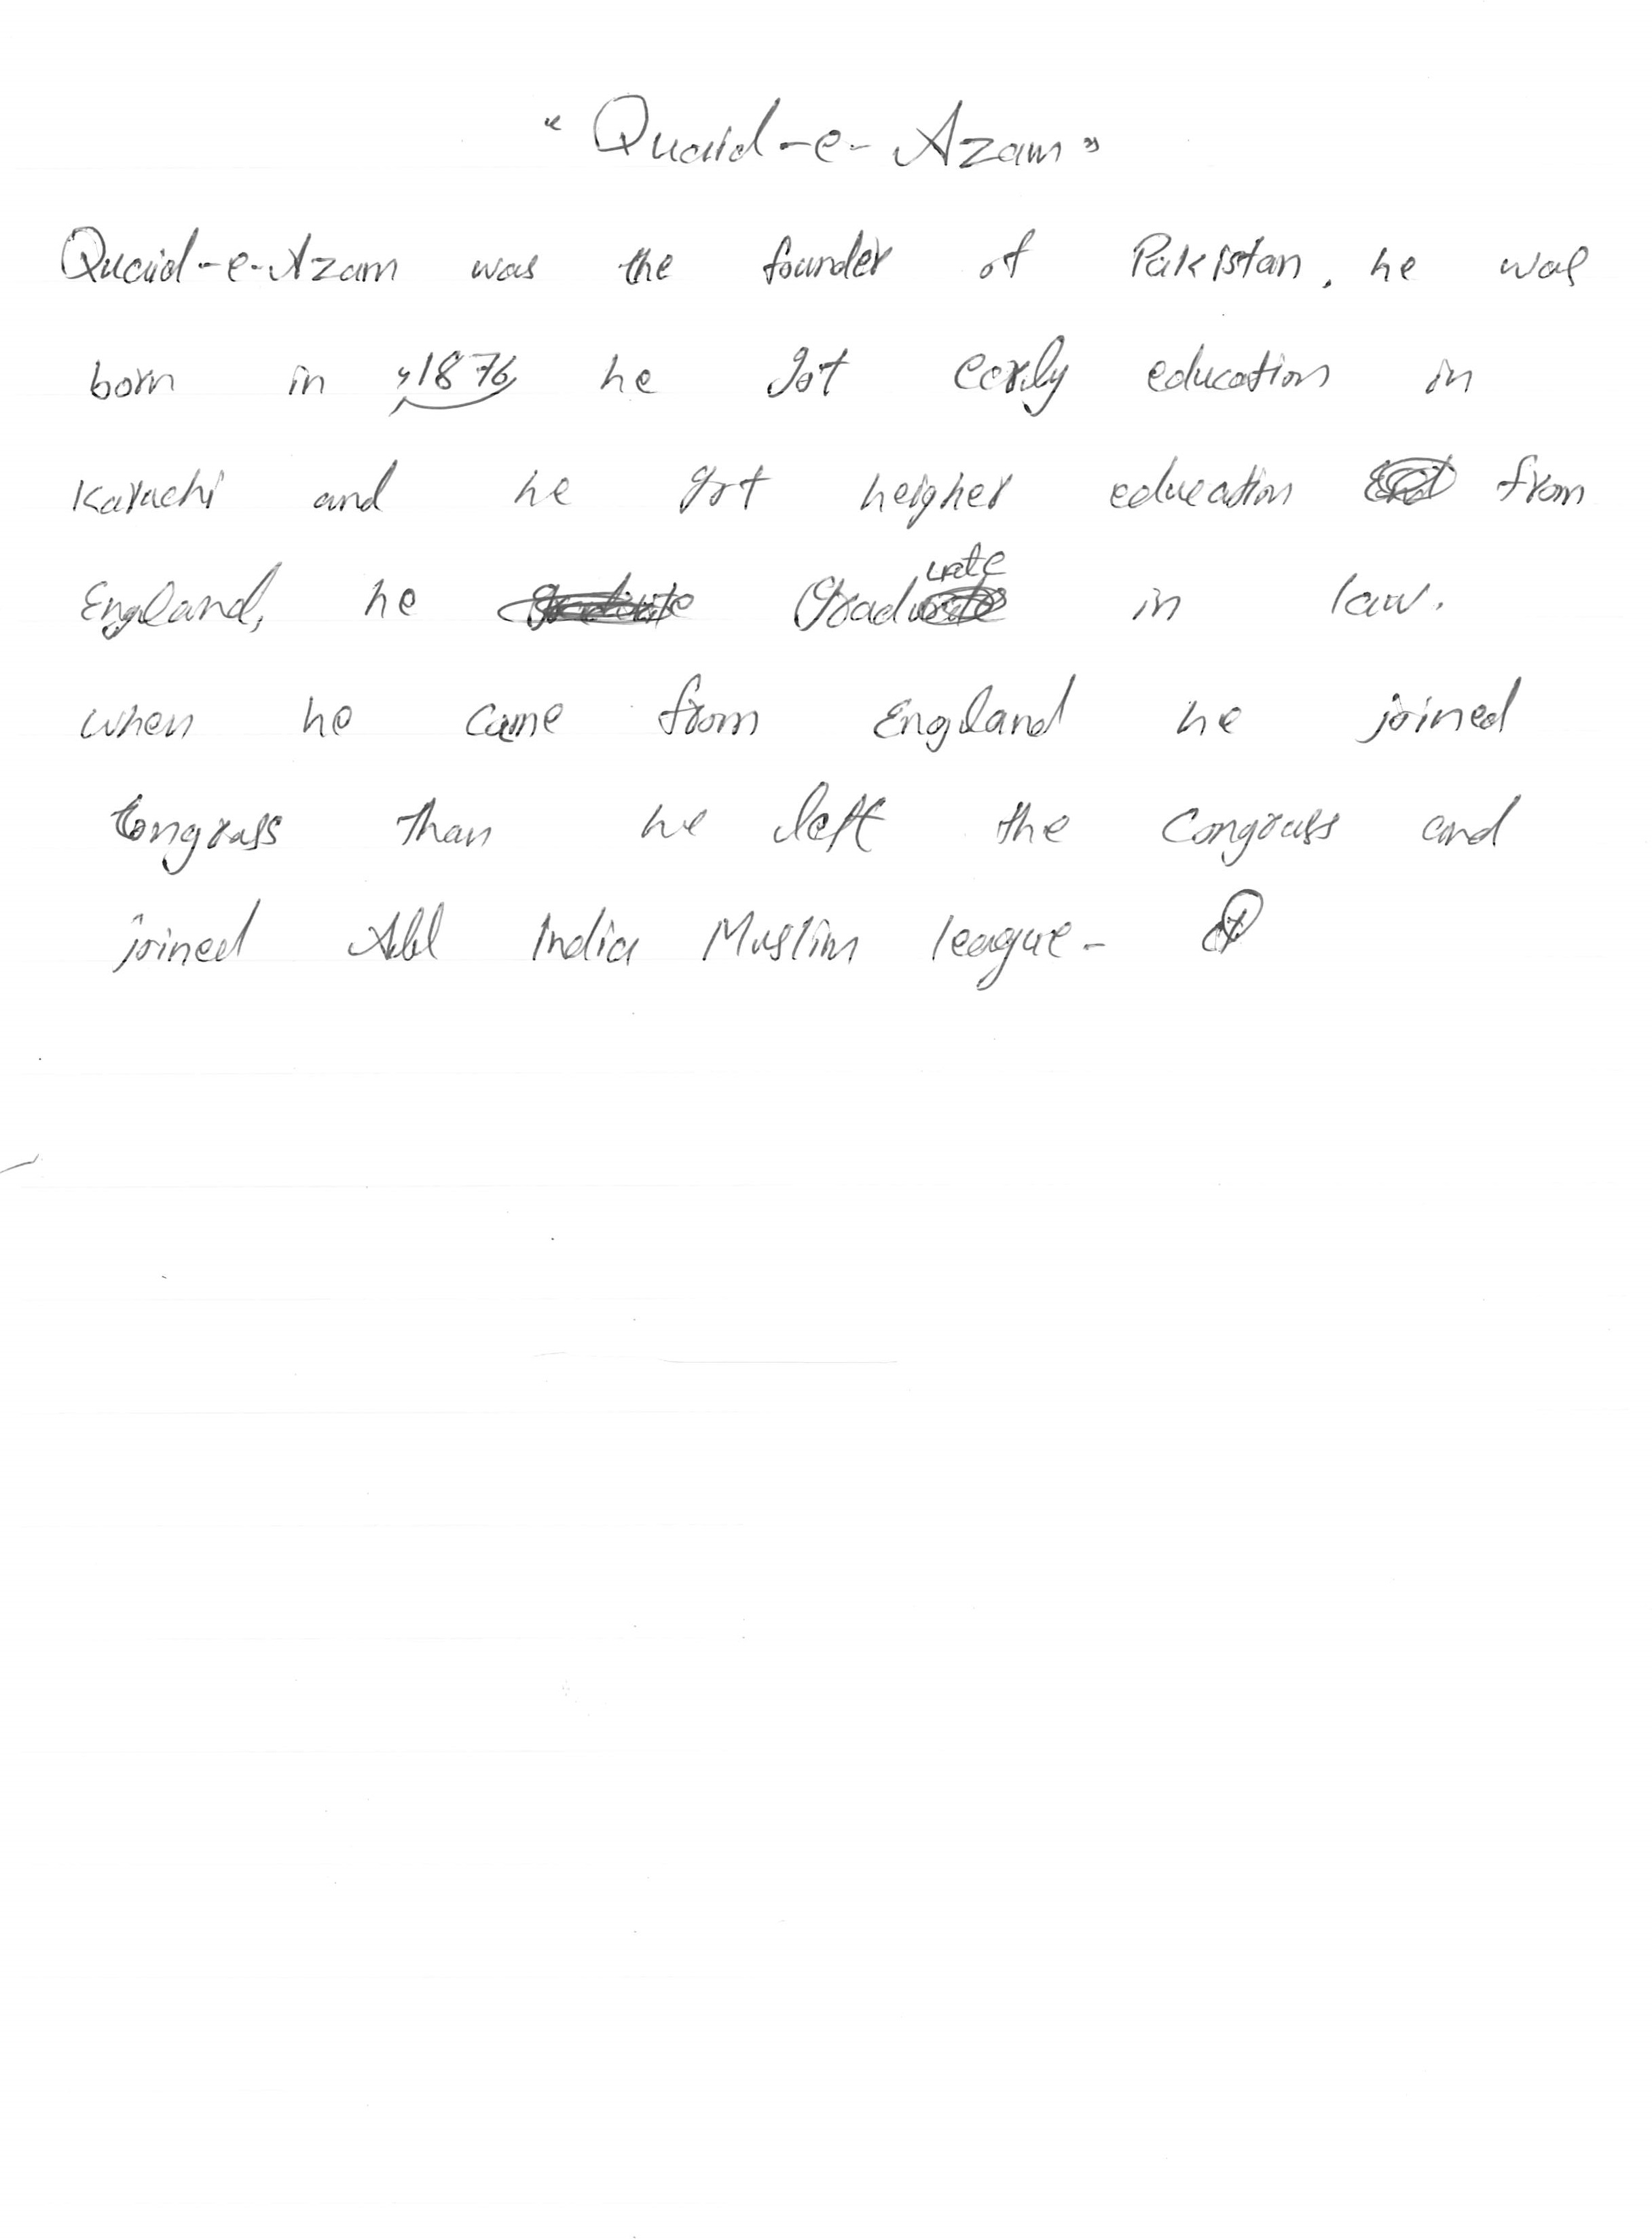 "Quaid-e-Azam"
Quaid-e-Azam was the founder of Pakistan. he was
born in 1876 he got early education in
Karachi and he got heigher education from
England, he Graduate in law.
when he came from England he joined
Congrass than he left the Congrass and
joined All India Muslim league-